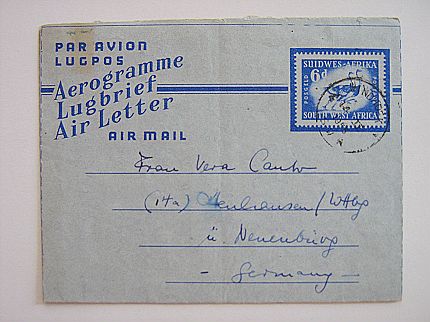 PAR AVION
LUGPOS
Aerogramme
Lugbrief
Air Letter
AIR MAIL
SUIDWES-AFRIKA
6d
POSGELD
SOUTH WEST AFRICA
Frau Vera
(14a) /Wttbg
ü. Neuenbürg
- Germany -